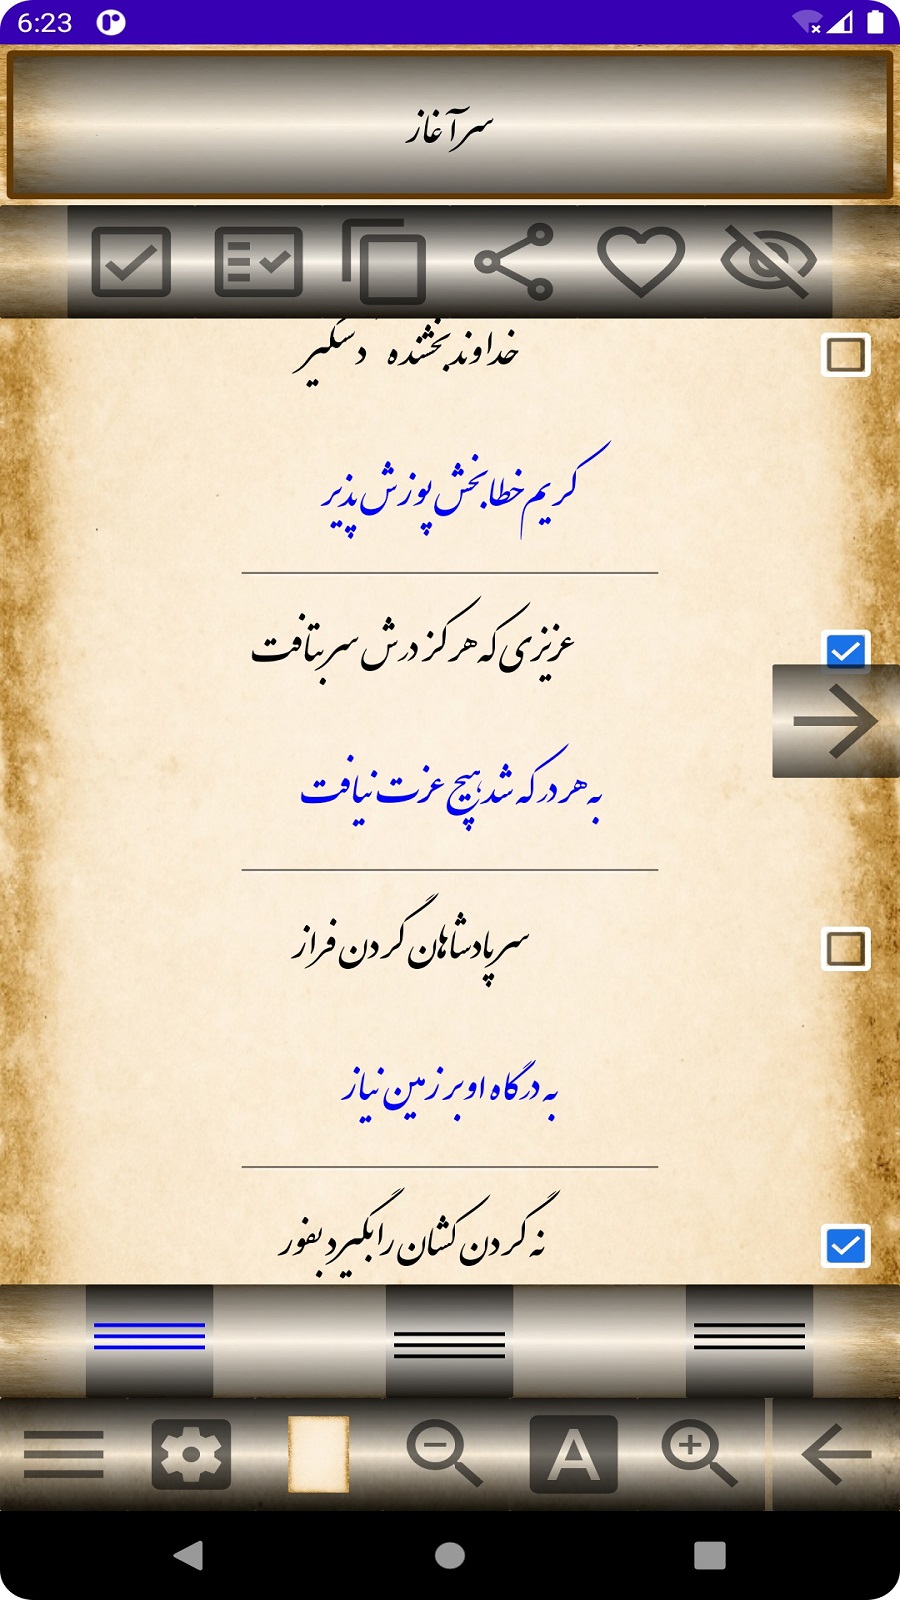 6:23
سرآغاز
خداوند بخشنده دستگیر
کریم خطا بخش پوزش پذیر
عزیزی که هر کز درش سر بتافت
به هر در که شد هیچ عزت نیافت
سر پادشاهان گردن فراز
به درگاه او بر زمین نیاز
نه گردن کشان را بگیرد بفور
A